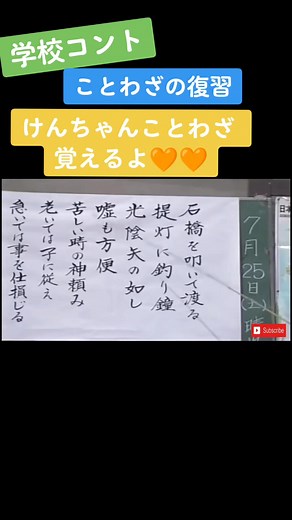 学校コント
ことわざの復習
けんちゃんことわざ
覚えるよ🧡🧡
7月25日(土)晴
石橋を叩いて渡る
提灯に釣り鐘
光陰矢の如し
嘘も方便
苦しい時の神頼み
老いては子に従え
急いては事を仕損じる
Subscribe